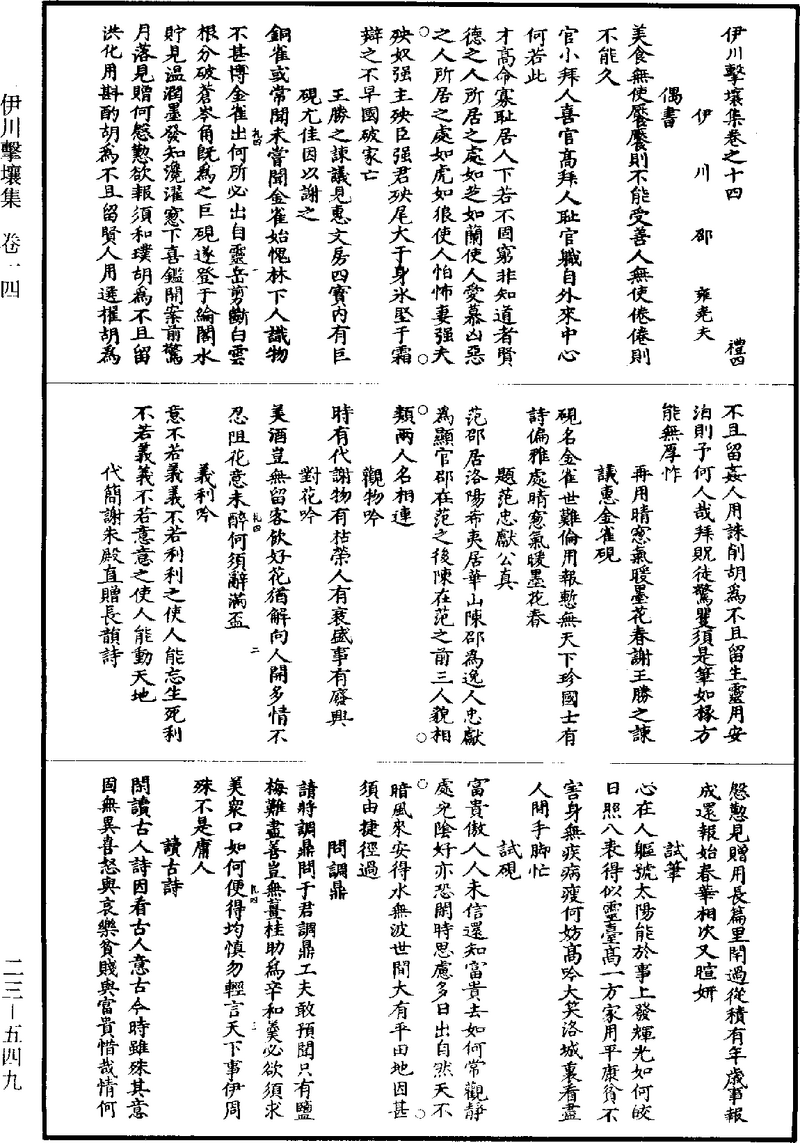 伊川擊壤集卷之十四 禮四
伊川邵雍堯夫
偶書
美食無使饜饜則不能受善人無使倦倦則
不能久
官小拜人喜官高拜人恥官職自外來中心
何若此
才高命寡恥居人下若不固窮非知道者賢
德之人所居之處如芝如蘭使人愛慕凶惡
之人所居之處如虎如狼使人怕怖妻強夫
殃奴強主殃臣強君殃尾大于身氷堅于霜
辯之不早國破家亡
王勝之諫議見惠文房四寶內有巨
硯尤佳因以謝之
銅雀或常聞未嘗聞金雀始愧林下人識物
不甚博金雀出何所必出自靈岳剪斷白雲
根分破蒼岑角既為之巨硯遂登于綸閣水
貯見溫潤墨發知瀺濯窻下喜鑑開案前驚
月落見贈何慇懃欲報須和璞胡為不且留
洪化用斟酌胡為不且留賢人用選擢胡為
不且留姦人用誅削胡為不且留生靈用安
泊則予何人哉拜貺徒驚矍須是筆如椽方
能無厚怍
再用晴窻氣暖墨花春謝王勝之諫
議惠金雀硯
硯名金雀世難倫用報慙無天下珍國士有
詩偏雅處晴窻氣暖墨花春
題范忠獻公真
范邵居洛陽希夷居華山陳邵為逸人忠獻
為顯官邵在范之後陳在范之前三人貌相
類兩人名相連
觀物吟
時有代謝物有枯榮人有衰盛事有廢興
對花吟
美酒豈無留客飲好花猶解向人開多情不
忍阻花意未醉何須辭滿盃
義利吟
意不若義義不若利利之使人能忘生死利
不若義義不若意意之使人能動天地
代簡謝朱殿直贈長韻詩
慇懃見贈用長篇里閈過從積有年歲事報
成還報始春華相次又暄妍
試筆
心在人軀號太陽能於事上發輝光如何皎
日照八表得似靈臺高一方家用平康貧不
害身無疾病瘦何妨高吟大笑洛城裏看盡
人閒手脚忙
試硯
富貴傲人人未信還知富貴去如何常觀靜
處光陰好亦恐閒時思慮多日出自然天不
暗風來安得水無波世閒大有平田地因甚
須由捷徑過
問調鼎
請將調鼎問于君調鼎工夫敢預聞只有鹽
梅難盡善豈無薑桂助為辛和羹必欲須求
美衆口如何便得均慎勿輕言天下事伊周
殊不是庸人
讀古詩
閒讀古人詩因看古人意古今時雖殊其意
固無異喜怒與哀樂貧賤與富貴惜哉情何
伊川擊壤集 卷一四
二三—五四九